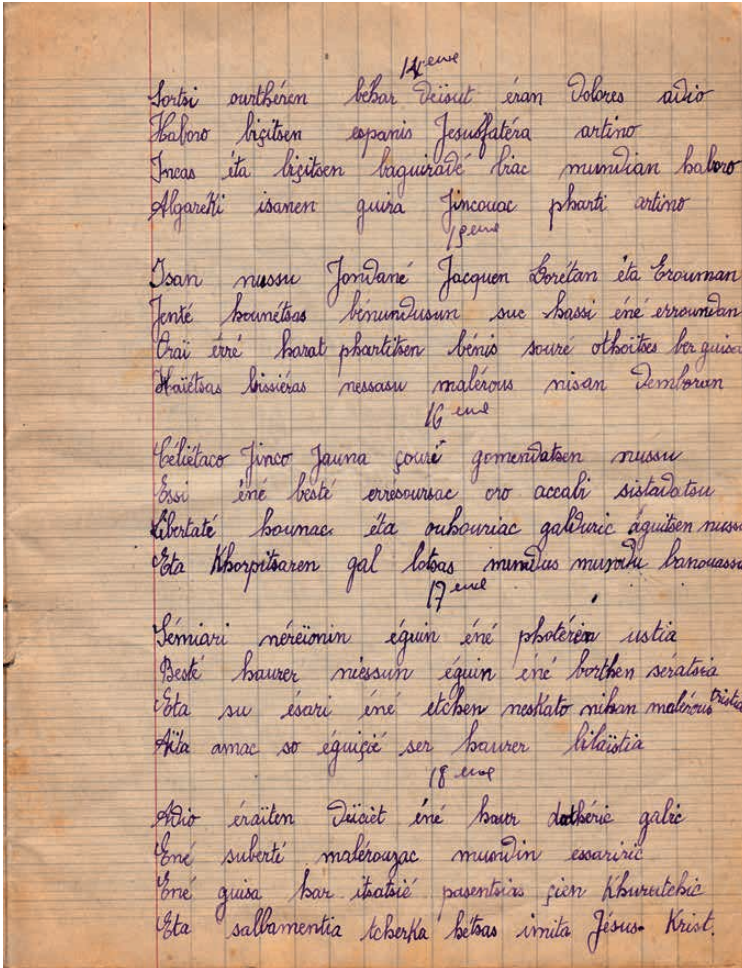 14 eme
Sortsi ourthéren béhar deïsut éran Dolores adio
Haboro biçitsen espanis Jesusfatéra artino
Incas éta biçitsen baguiradé biac mundian haboro
Algaréki isanen guira Jincouac pharti artino
15 eme
Isan nussu Jondané Jacquen Lorétan éta Erouman
Jenté hounétsas bénundusun suc hassi éné erroundan
Oraï érré harat phartitsen bénis souré othoïtses ber guisa
Haiétsas bissiéras nessasu malérous nisan demboran
16 eme
Céliétaco Jinco Jauna çouré gomendatsen nussu
Essi éné besté erresoursac oro accabi sistadatsu
Libertaté hounac éta ouhouriac galduric aguitsen nussu
Eta Khorpitsaren gal lotsas mundus mundu banouassu
17 eme
Sémiari néréionin éguin éné photéréa ustia
Besté haurer niessun éguin éné borthen sératsia
Eta su ésari éné etchen neskato nihan malérous tristia
Aïta amac so éguiçié ser haurer bilaïstia
18 eme
Adio éraïten deïciet éné haur dothéric galic
Ené suberté malérouzac mundin essaririç
Ené guisa har itsatsié pasentsias çien Khurutchic
Eta salbamentia tcherka bétsas imita Jésus-Krist.